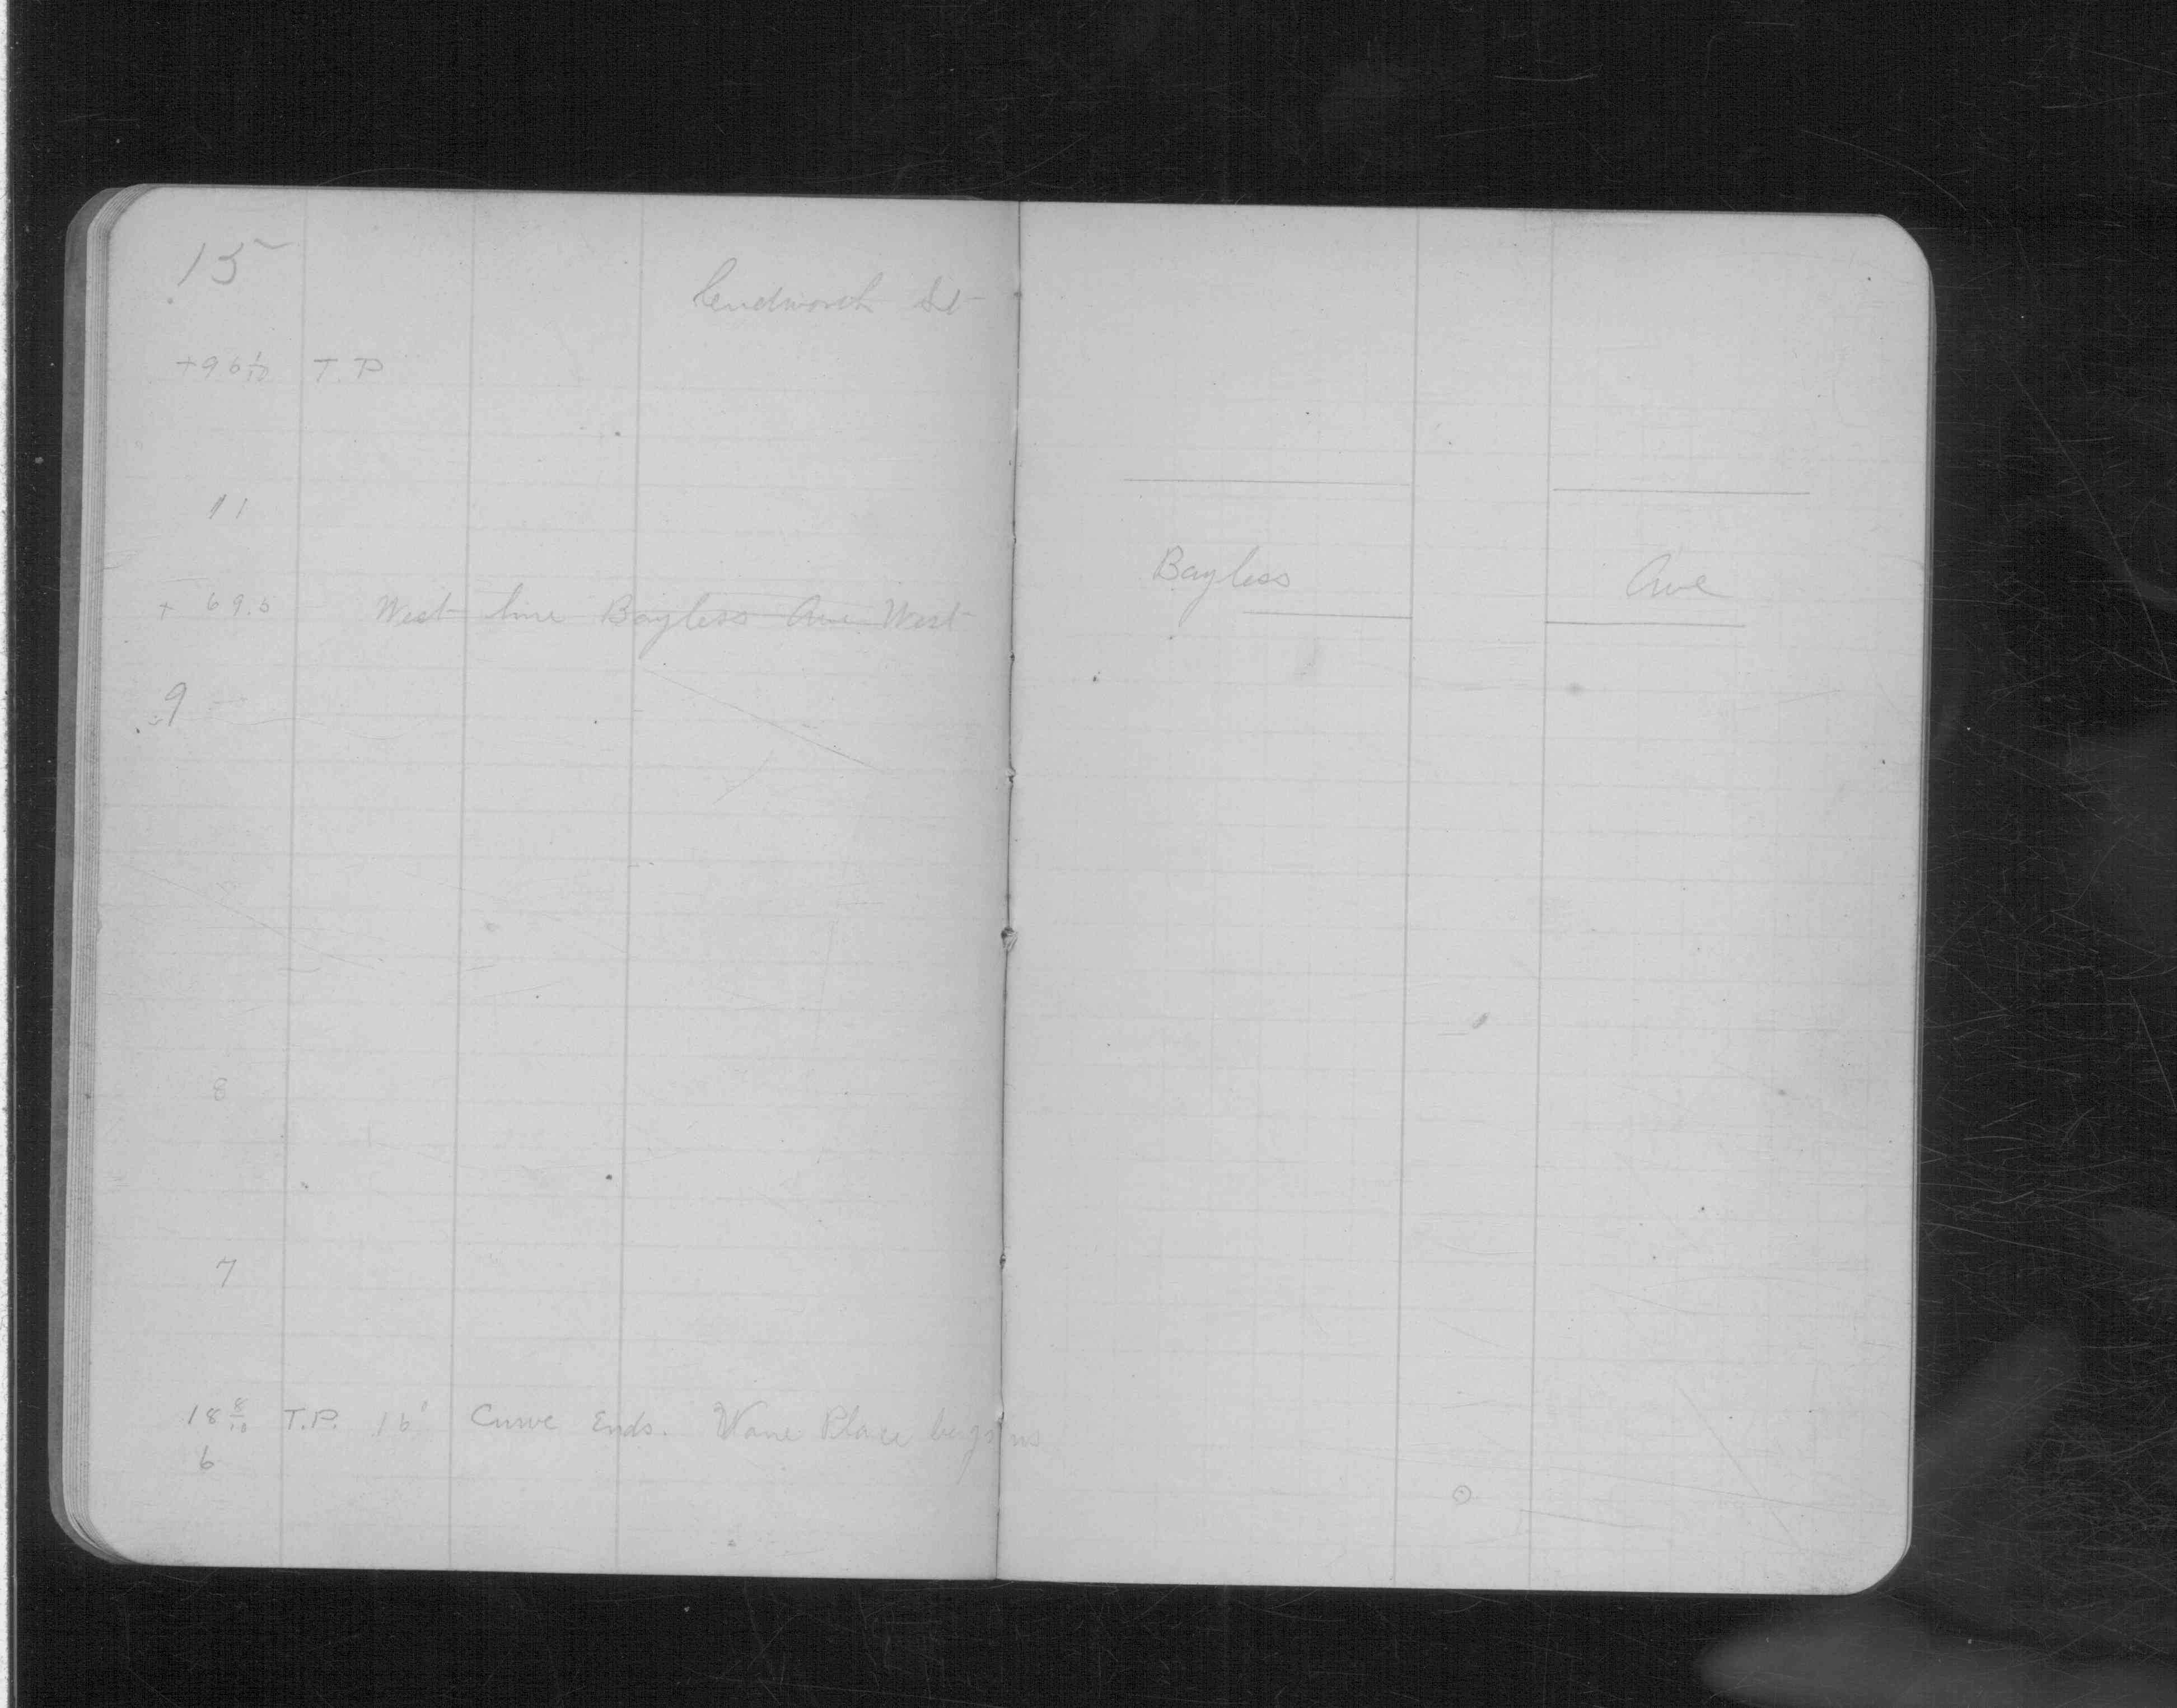 15
St
+96 1/10 T.P
11
Bayless Ave
+ 69.5 West line Bayless Ave West
9
8
7
18 8/10 T.P. 16' Curve Ends. Place begins
6